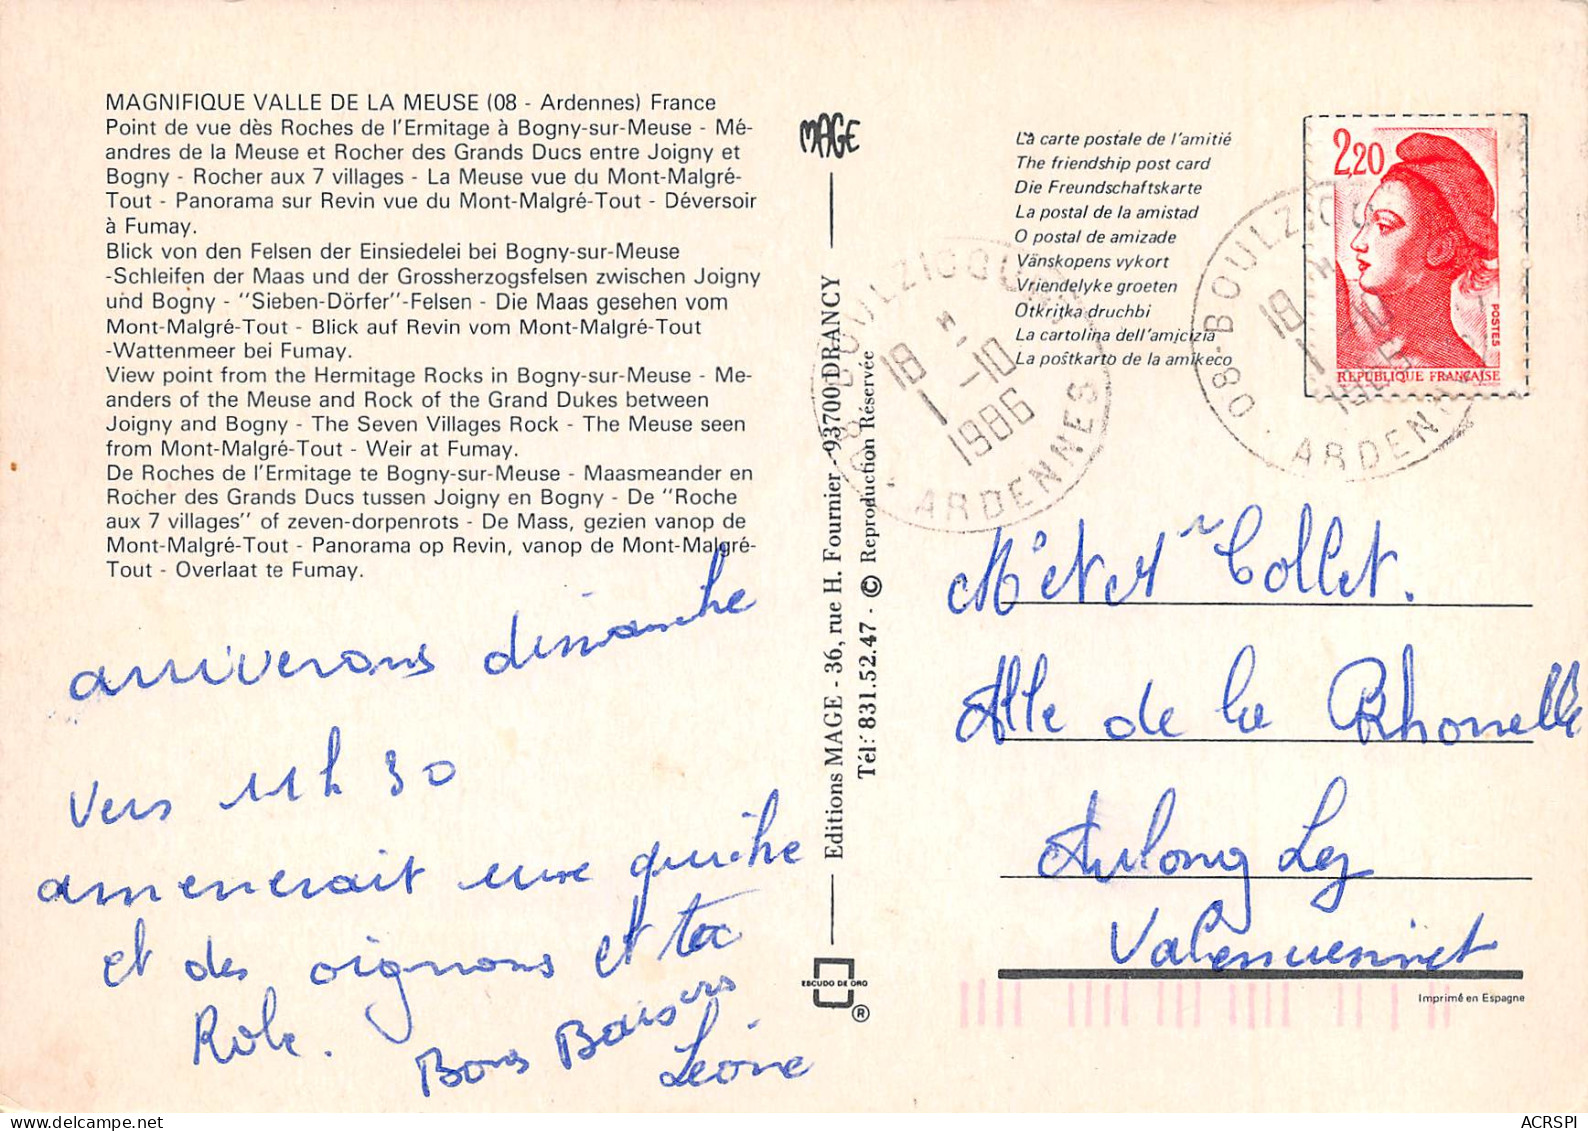 MAGNIFIQUE VALLE DE LA MEUSE (08 - Ardennes) France
Point de vue dès Roches de l'Ermitage à Bogny-sur-Meuse - Mé-
andres de la Meuse et Rocher des Grands Ducs entre Joigny et
Bogny - Rocher aux 7 villages - La Meuse vue du Mont-Malgré-
Tout - Panorama sur Revin vue du Mont-Malgré-Tout - Déversoir
à Fumay.
Blick von den Felsen der Einsiedelei bei Bogny-sur-Meuse
-Schleifen der Maas und der Grossherzogsfelsen zwischen Joigny
und Bogny - "Sieben-Dörfer"-Felsen - Die Maas gesehen vom
Mont-Malgré-Tout - Blick auf Revin vom Mont-Malgré-Tout
-Wattenmeer bei Fumay.
View point from the Hermitage Rocks in Bogny-sur-Meuse - Me-
anders of the Meuse and Rock of the Grand Dukes between
Joigny and Bogny - The Seven Villages Rock - The Meuse seen
from Mont-Malgré-Tout - Weir at Fumay.
De Roches de l'Ermitage te Bogny-sur-Meuse - Maasmeander en
Rocher des Grands Ducs tussen Joigny en Bogny - De "Roche
aux 7 villages" of zeven-dorpenrots - De Mass, gezien vanop de
Mont-Malgré-Tout - Panorama op Revin, vanop de Mont-Malgré-
Tout - Overlaat te Fumay.
arriverons dimanche
vers 11h 30
amenerait une quiche
et des oignons et ta
Role.
Bons Baisers
Léone
MAGE
Editions MAGE - 36, rue H. Fournier - 93700 DRANCY
Tél: 831.52.47 - © Reproduction Réservée
ESCUDO DE ORO
®
La carte postale de l'amitié
The friendship post card
Die Freundschaftskarte
La postal de la amistad
O postal de amizade
Vänskopens vykort
Vriendelyke groeten
Otkritka druchbi
La cartolina dell'amicizia
La postkarto de la amikeco
08-BOULZICOURT
18 H
1-10
1986
ARDENNES
2,20
POSTES
REPUBLIQUE FRANÇAISE
08-BOULZICOU
18 H
1-10
1986
ARDENN
Mr et Me Collet.
Alle de la Rhonelle
Aulong Lez
Valensuenniet
Imprimé en Espagne
ACRSPI